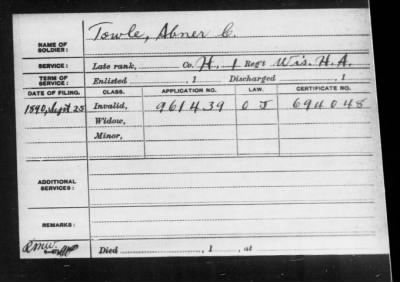 NAME OF SOLDIER: Towle, Abner C.
SERVICE: Late rank, Co. H. 1 Reg't Wis. H. A.
TERM OF SERVICE: Enlisted , 1 Discharged , 1
DATE OF FILING. CLASS. APPLICATION NO. LAW. CERTIFICATE NO.
1890, Sept 25 Invalid, 961439 694048
Widow,
Minor,
ADDITIONAL SERVICES:
REMARKS:
Died , 1 , at